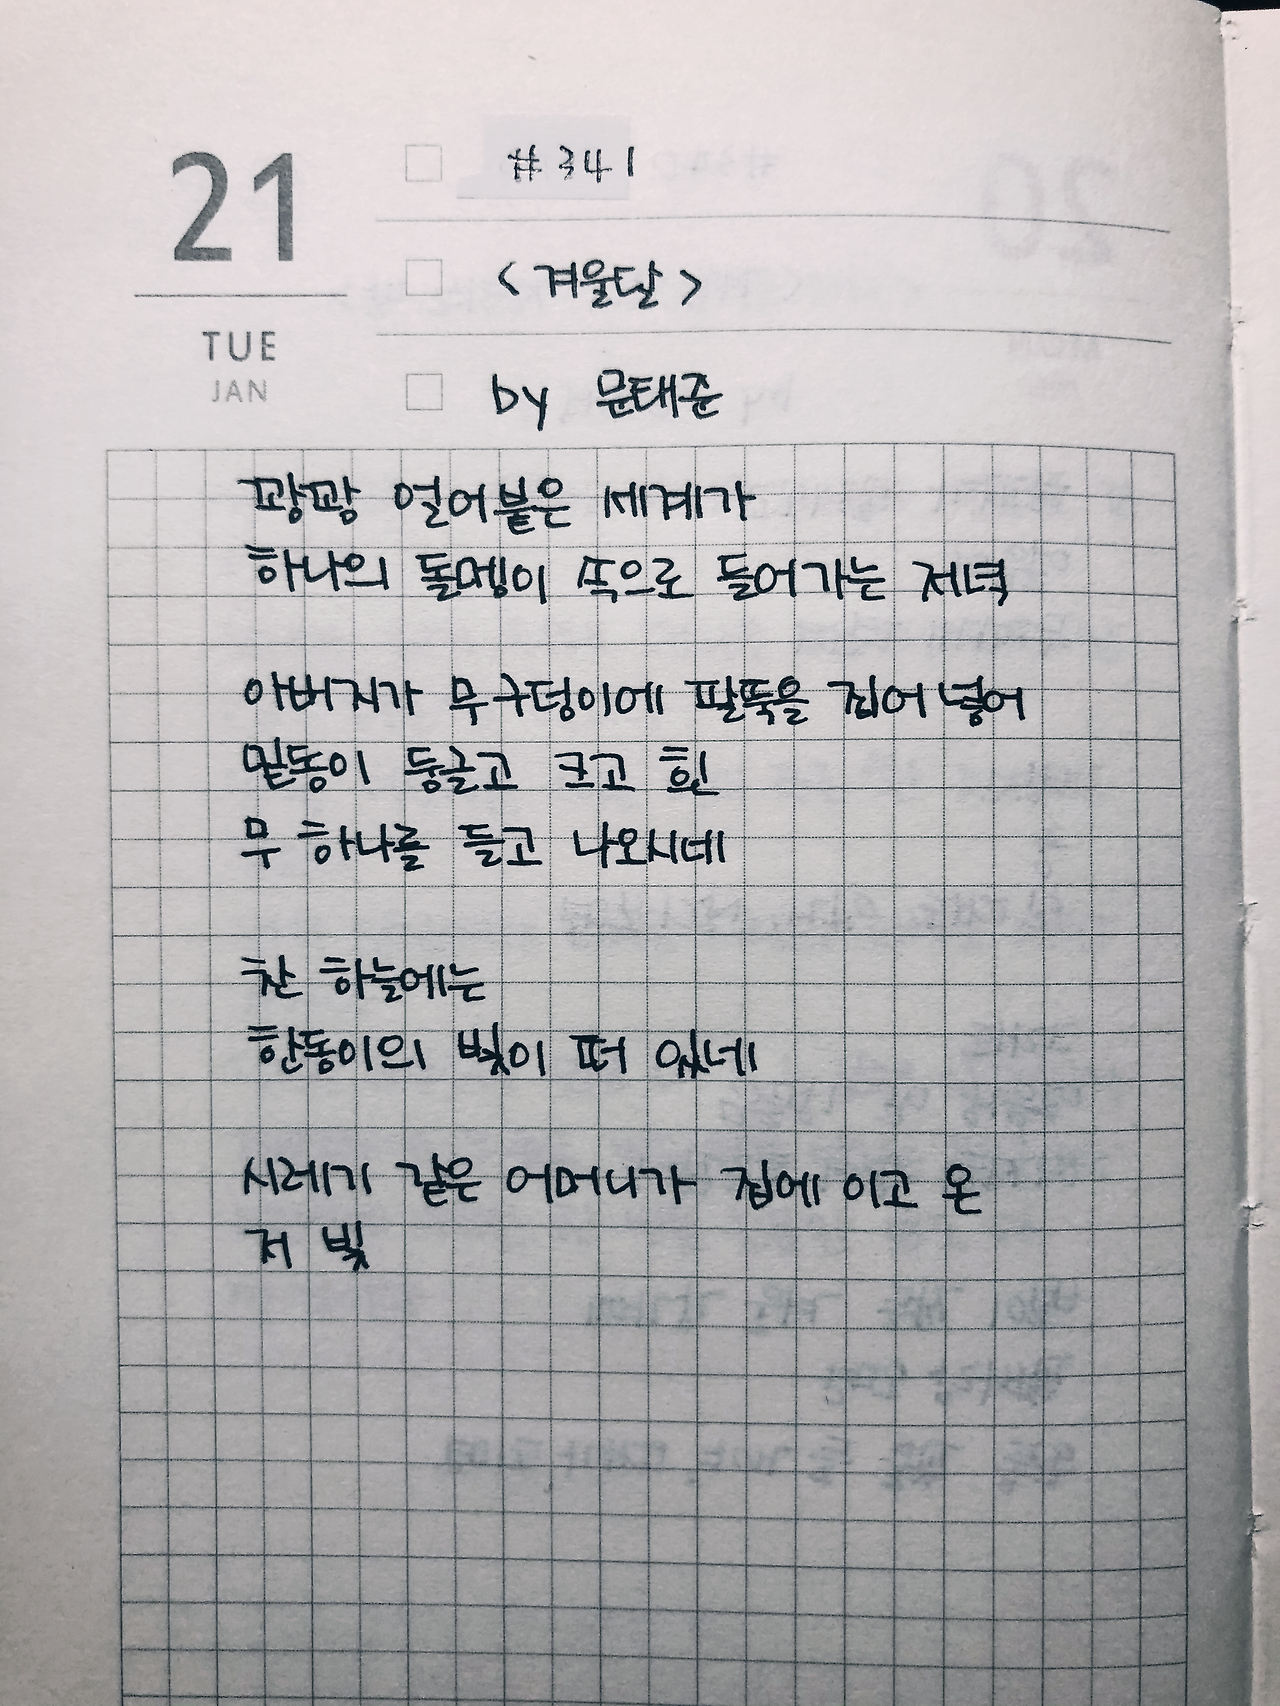 21
TUE
JAN
#341
<겨울달>
by 문태준
꽝꽝 얼어붙은 세계가
하나의 돌멩이 쪽으로 들어가는 저녁
아버지가 무구덩이에 팔뚝을 집어넣어
밑동이 둥글고 크고 흰
무 하나를 들고 나오시네
찬 하늘에는
한동이의 빛이 떠 있네
시레기 같은 어머니가 집에 이고 온
저 빛